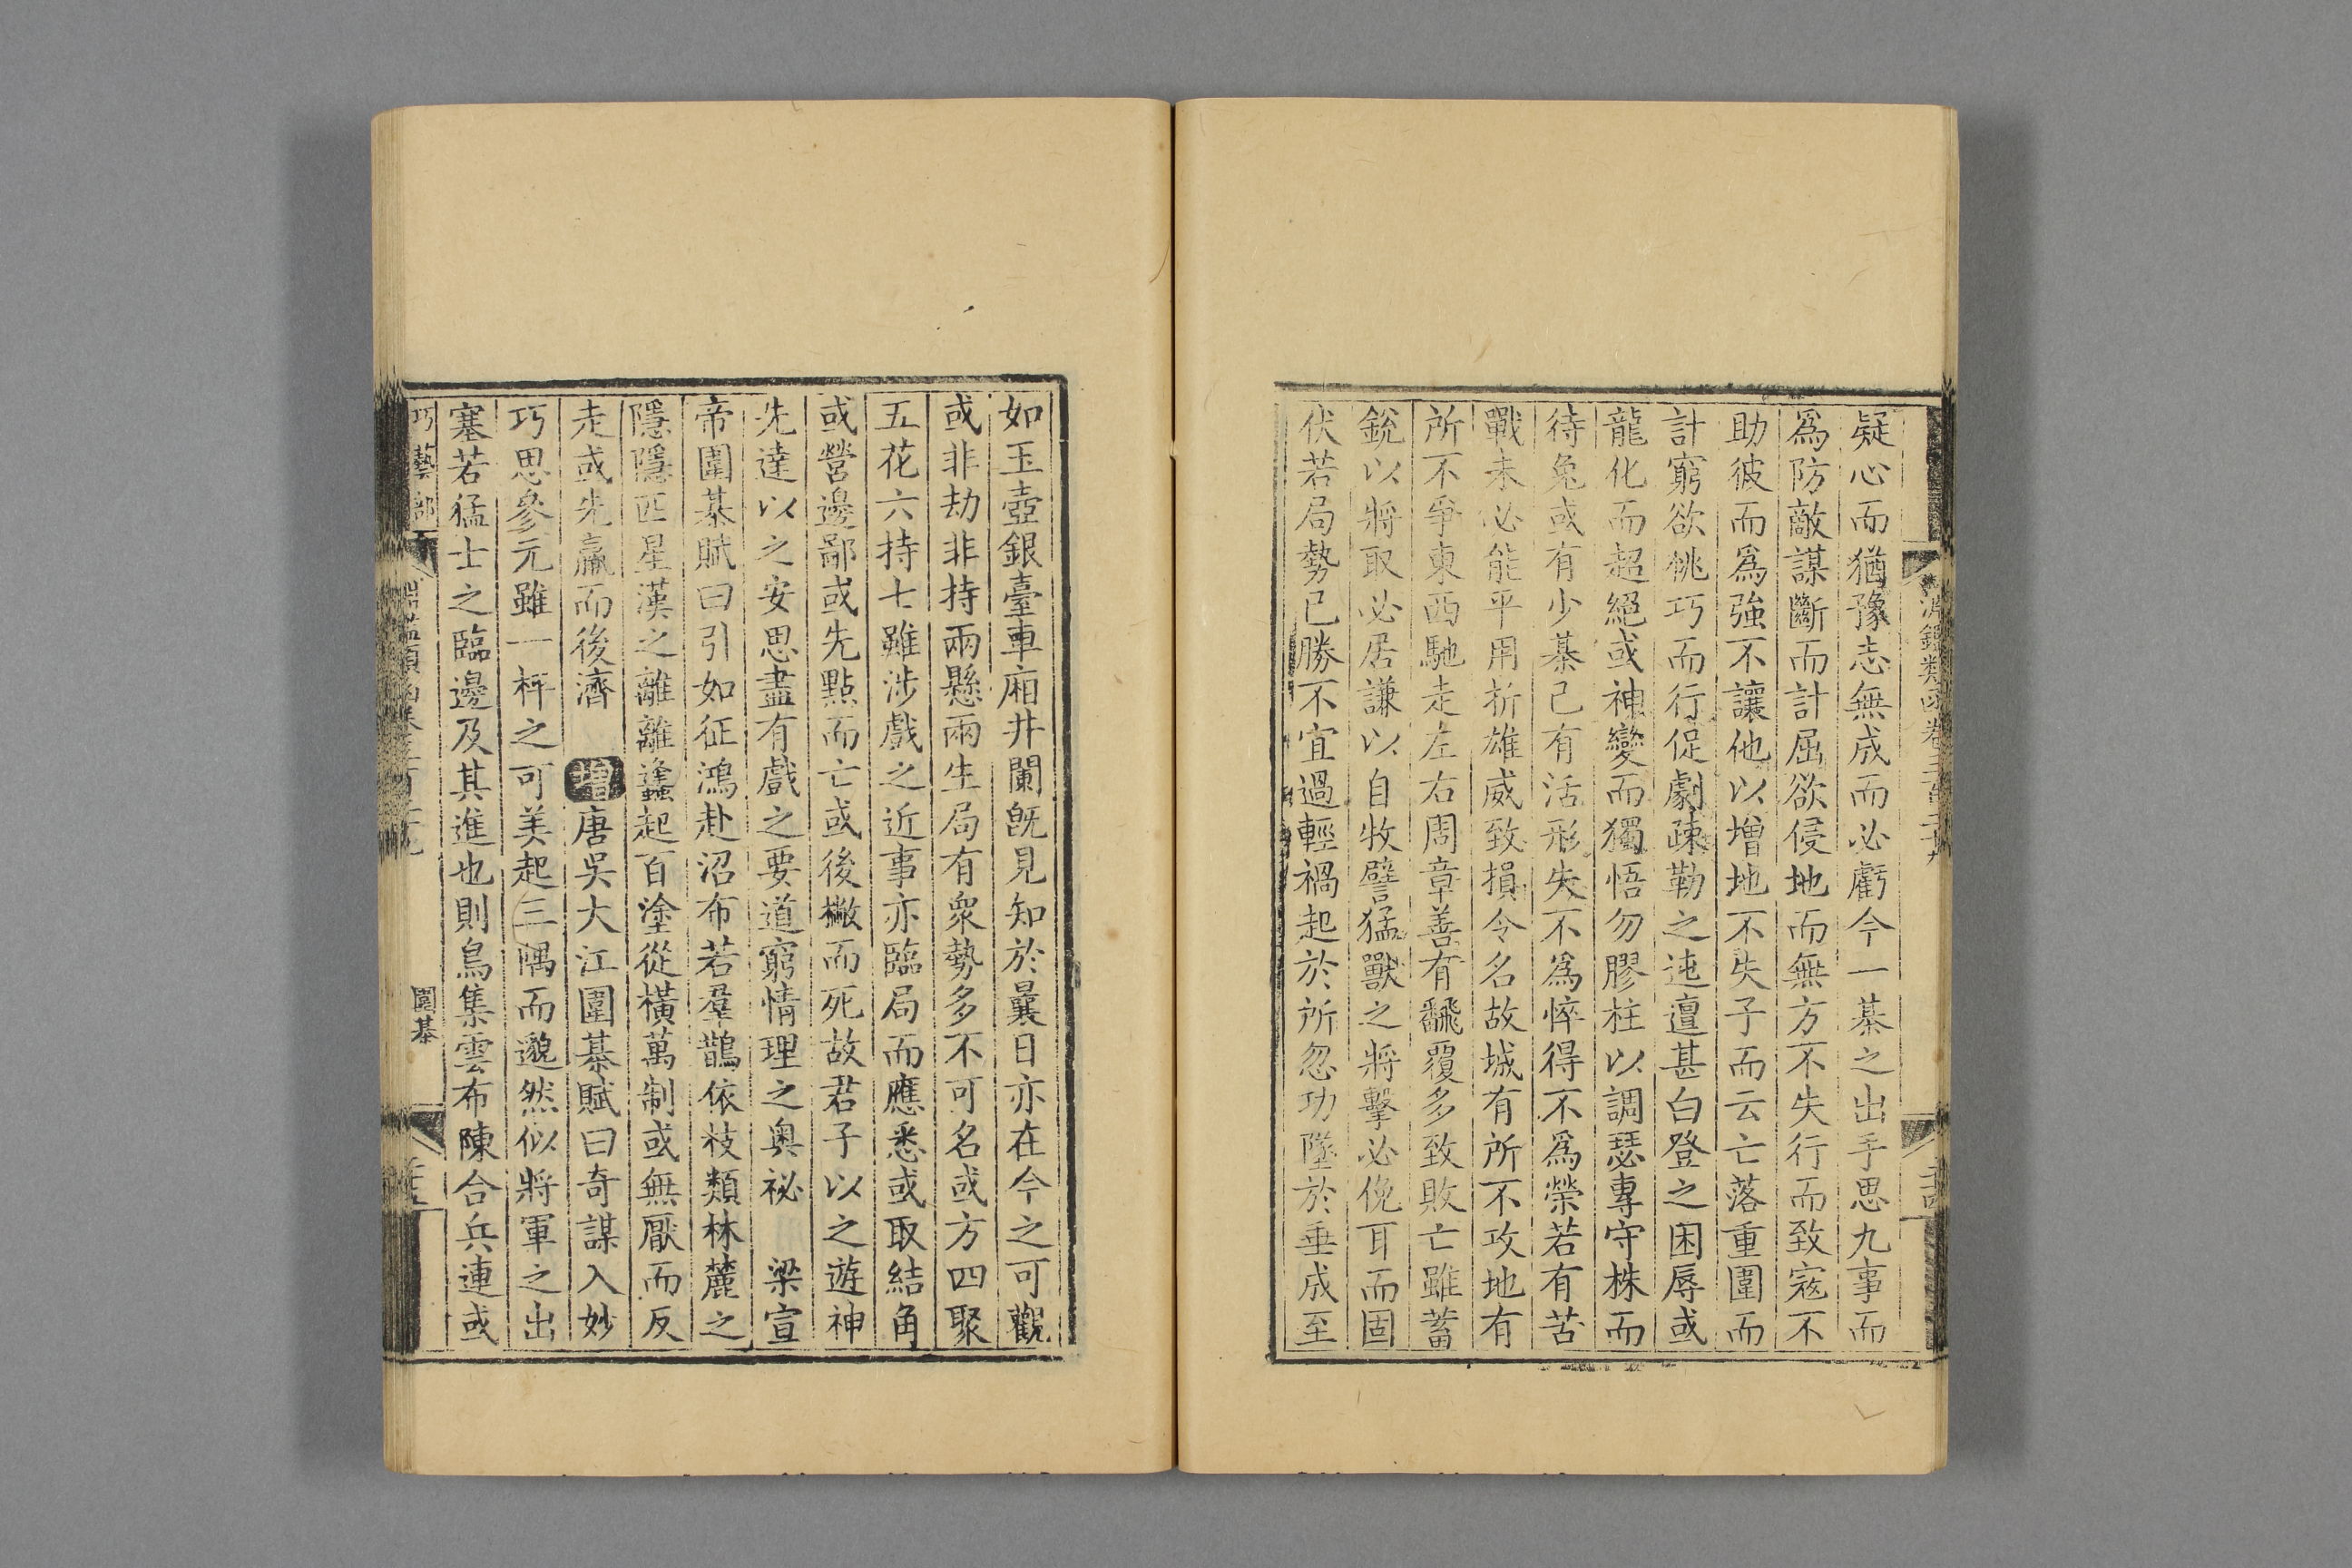 疑心而猶豫志無成而必虧今一棊之出手思九事而
爲防敵謀斷而計屈欲侵地而無方不失行而致寇不
助彼而爲強不讓他以增地不失子而云亡落重圍而
計窮欲佻巧而行促劇疎勒之迍邅甚白登之困辱或
龍化而超絕或神變而獨悟勿膠柱以調瑟專守株而
待兔或有少棊已有活形失不爲悴得不爲榮若有苦
戰未必能平用折雄威致損令名故城有所不攻地有
所不爭東西馳走左右周章善有飜覆多致敗亡雖蓄
銳以將取必居謙以自牧譬猛獸之將擊必俛耳而固
伏若局勢已勝不宜過輕禍起於所忽功墜於垂成至
如玉壺銀臺車廂井闌旣見知於曩日亦在今之可觀
或非劫非持兩懸兩生局有衆勢多不可名或方四聚
五花六持七雖涉戲之近事亦臨局而應悉或取結角
或營邊鄙或先點而亡或後撇而死故君子以之遊神
先達以之安思盡有戲之要道窮情理之奧祕 梁宣
帝圍棊賦曰引如征鴻赴沼布若羣鵲依枝類林麓之
隱隱匹星漢之離離蠭起百塗從橫萬制或無厭而反
走或先羸而後濟 增唐吳大江圍棊賦曰奇謀入妙
巧思參元雖一枰之可美起三隅而邈然似將軍之出
塞若猛士之臨邊及其進也則鳥集雲布陳合兵連或
巧藝部 圍棊